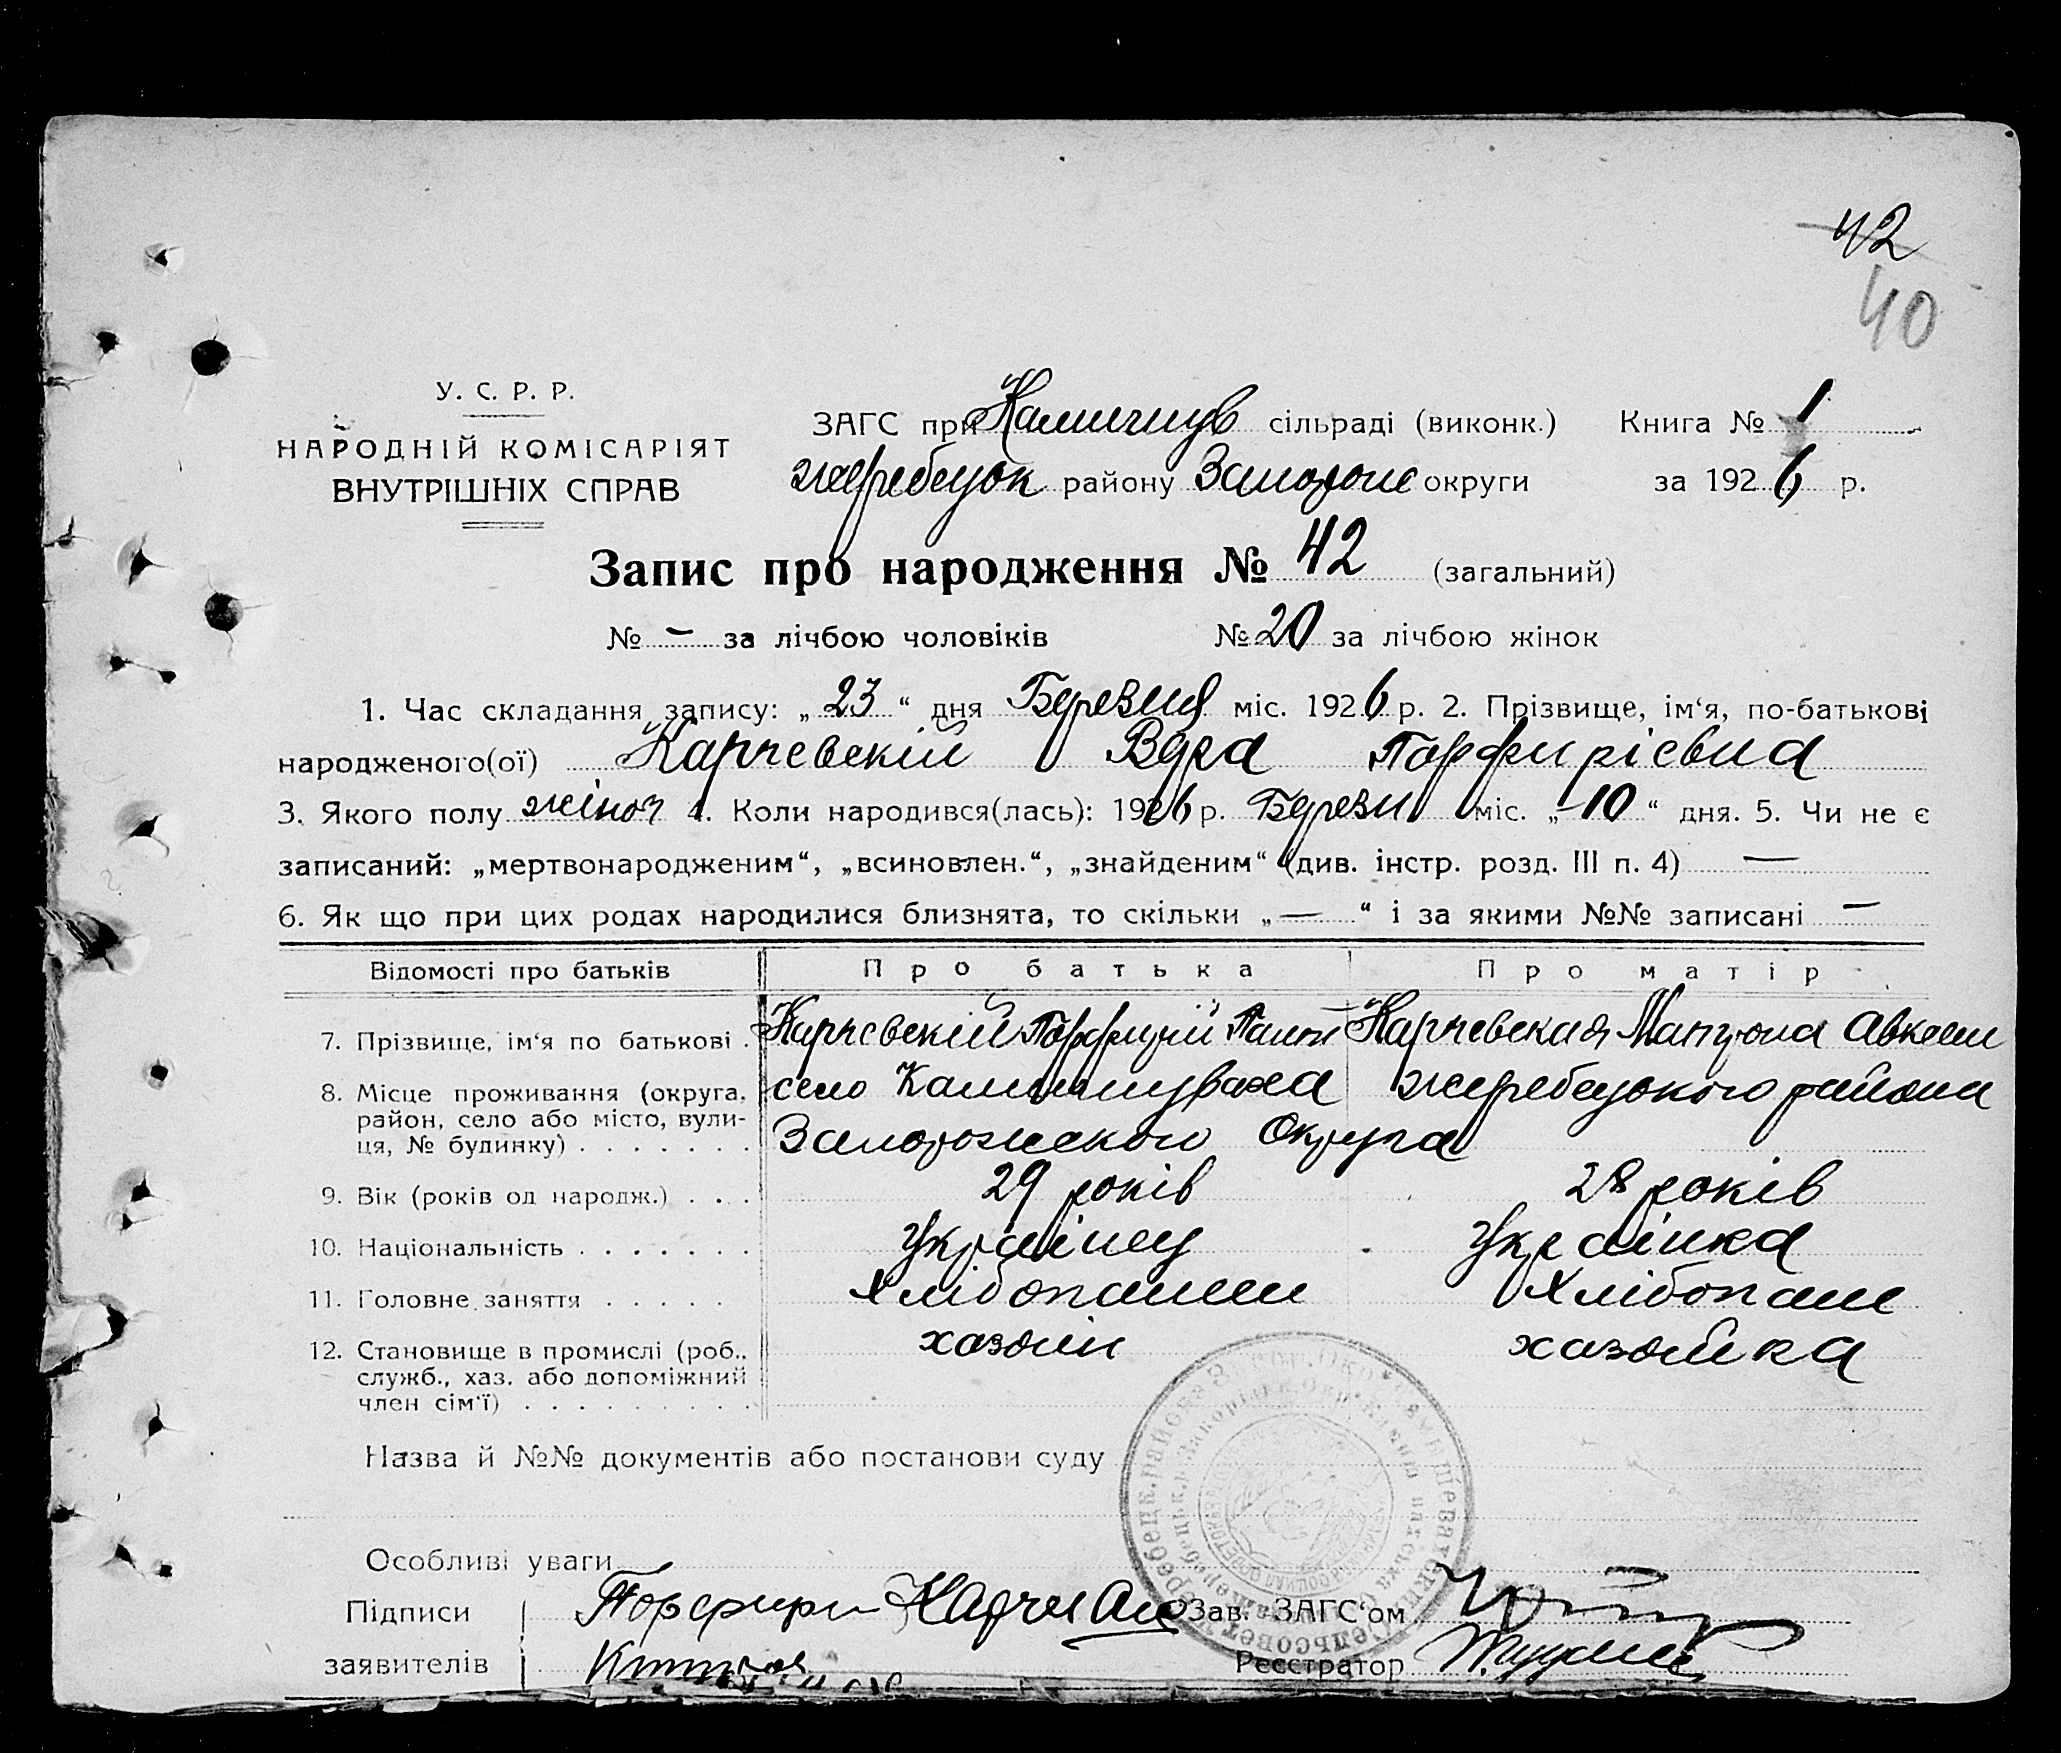 42
40
У. С. Р. Р.
НАРОДНІЙ КОМІСАРІЯТ
ВНУТРІШНІХ СПРАВ
ЗАГС при сільраді (виконк.) Книга № 1
жеребецьк району Запорож округи за 1926 р.
Запис про народження № 42 (загальний)
№ - за лічбою чоловіків № 20 за лічбою жінок
1. Час складання запису: „ 23 “ дня Березня міс. 1926 р. 2. Прізвище, ім‘я, по-батькові
народженого(ої) Карпевский Вера Порфирієвна
3. Якого полу жіноч 4. Коли народився(лась): 1926 р. Березн міс. „ 10 “ дня. 5. Чи не є
записаний: „мертвонародженим“, „всиновлен.“, „знайденим“ (див. інстр. розд. III п. 4) —
6. Як що при цих родах народилися близнята, то скільки „ — “ і за якими №№ записані —
Відомості про батьків Про батька Про матір
7. Прізвище, ім‘я по батькові . Карпевский Порфирій Карпевская
8. Місце проживання (округа, село жеребецького района
район, село або місто, вули-
ця, № будинку) . . . . . . . Запорожского Округа
9. Вік (років од народж.) . . . 29 років 28 років
10. Національність . . . . . . . Українец Українка
11. Головне заняття . . . . . Хлібопашец Хлібопаш
12. Становище в промислі (роб., хазоін хазойка
служб., хаз. або допоміжний
член сім‘ї) . . . . . . . . .
Назва й №№ документів або постанови суду
Особливі уваги
Підписи Порфири Зав. ЗАГС‘ом
заявителів Реєстратор